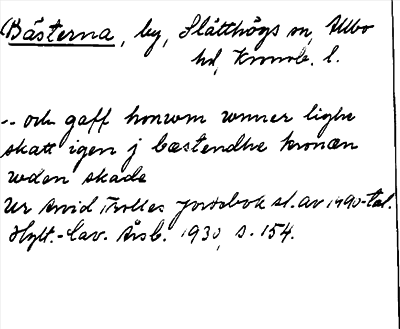 (Bästerna, by, Slätthögs sn, Allbo
hd, Kronob. l.
-- och gaff honwm wnner lighe
skatt igen j bæstendhe kronæn
wden skade
Ur Arvid Trolles jordebok sl. av 1490-tal.
Hylt.-Cav. Årsb. 1930, s. 154.